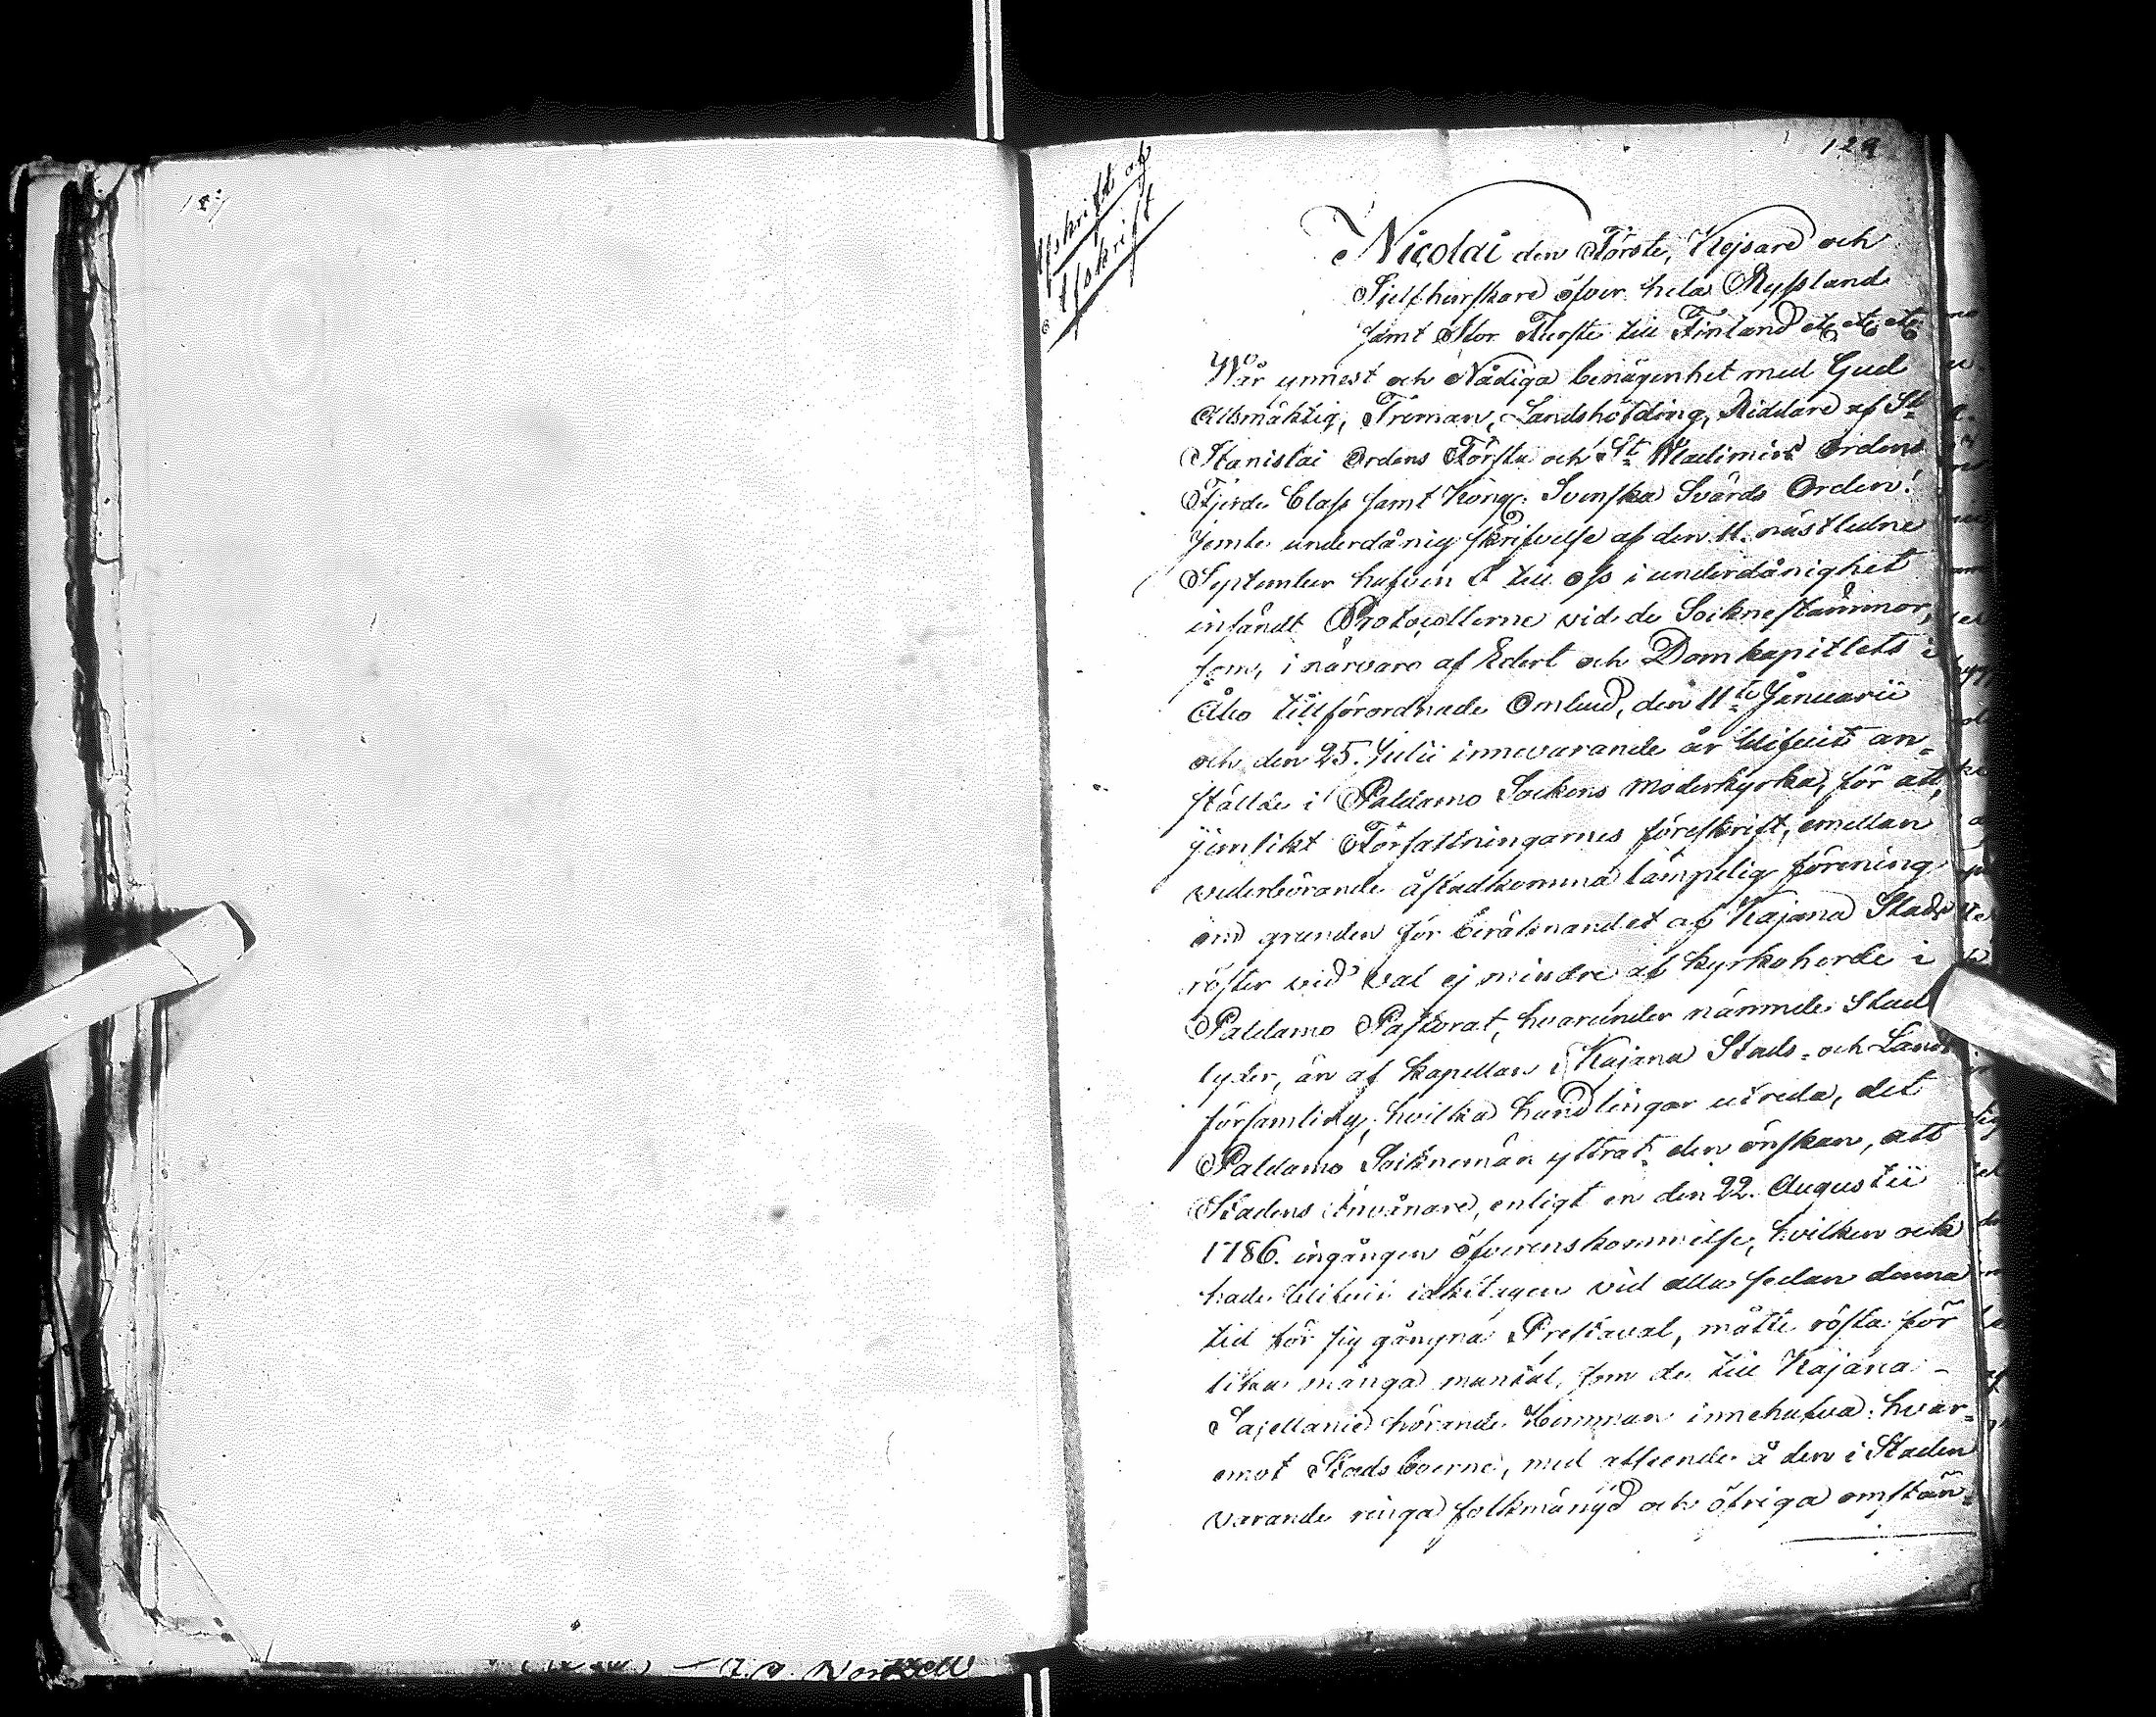 129
Afskrift af
Afskrift
Nicolai den Förste, Kejsare och
Sjelfherrskare öfver hela Ryssland
samt Stor Furste till Finland etc etc etc
Wår ynnest och Nådiga benägenhet med Gud
Allsmäktig, Troman, Landshöfding, Riddare af St
Stanislai Ordens Första och St Wladimirs Ordens
Fjerde Class samt Kongl. Svenska Svärds Orden!
Jemte underdånig skrifvelse af den 11. nästledne
September hafven I till oss i underdånighet
insändt Protocollerne vid de Sockne stämmor,
som, i närvaro af Edert och Domkapitlets i
Åbo tillförordnade Ombud, den 11te Januarii
och den 25. Julii innevarande år blifvit an-
ställde i Paldamo Sockens Moderkyrka, för att,
jemlikt Författningarnes föreskrift, emellan
vederbörande åstadkomma lämpelig förening
om grunden för beräknandet af Kajana Stads
röster vid val ej mindre af Kyrkoherde i
Paldamo Pastorat, hvarunder nämnde Stad
lyder, än af Kapellan i Kajana Stads- och Lands
församling; hvilka handlingar utreda, det
Paldamo Socknemän yttrat den önskan, att
Stadens Invånare, enligt en den 22. Augustii
1786. ingången öfverenskommelse, hvilken ock
hade blifvit iakttagen vid alla sedan denna
tid för sig gångna Prestaval, måtte rösta för
lika många mantal, som de till Kajana
Capellanie hörande Hemman innehafva: hvar-
emot Stadsboerne, med afseende å den i Staden
varande ringa folkmängd och öfriga omstän-